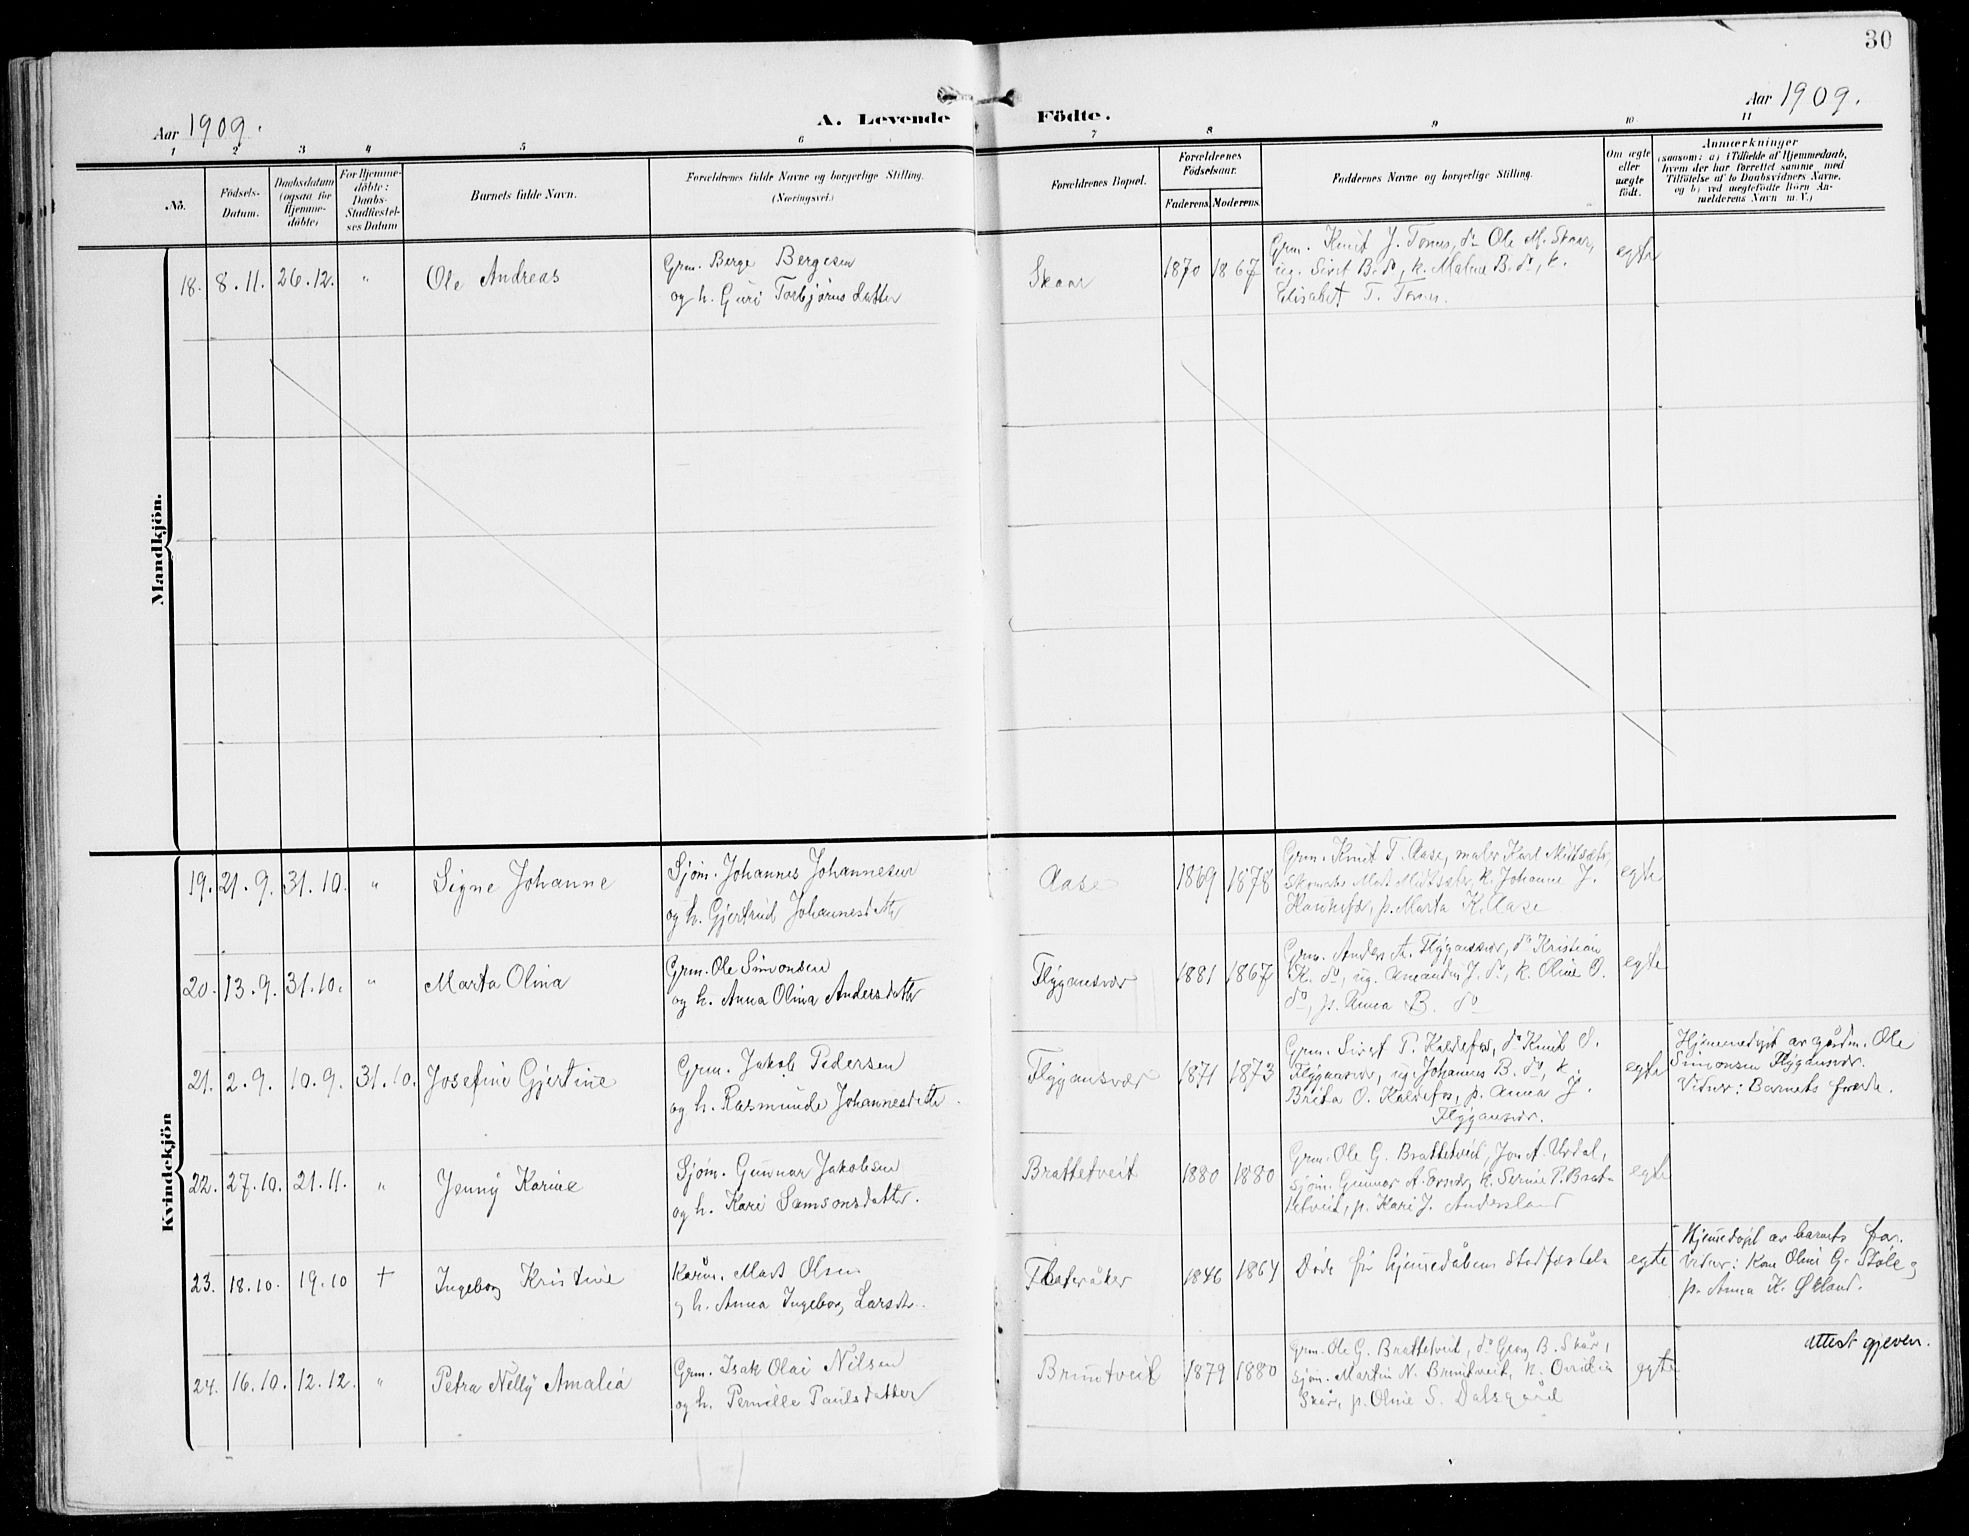 30
Aar 1909.
A. Levende Födte.
Aar 1909.
1 2 3 4 5 6 7 8 9 10 11
No.
Födsels-Datum.
Daabsdatum (ogsaa for Hjemme-döbte)
For Hjemme-döbte: Daabs-Stadfæstel-ses Datum
Barnets fulde Navn.
Forældrenes fulde Navne og borgerlige Stilling.
(Næringsvei.)
Forældrenes Bopæl.
Forældrenes Födselsaar.
Faderens. Moderens.
Faddernes Navne og borgerlige Stilling.
Om ægte eller uægte födt.
Anmærkninger
(saasom: a) i Tilfælde af Hjemmedaab,
hvem der har forrettet samme med
Tilföielse af to Daabsvidners Navne,
og b) ved uægtefödte Börn An-
melderens Navn m. V.)
Mandkjön.
18. 8.11. 26.12. " Ole Andreas
Grm. Berge Bergesen
og h. Guri Torbjørnsdatter
Skaar 1870 1867
Grm. Knut J. Tornes, do Ole M. Skaar,
ug. Sivert B. do, k. Malene B. do, k.
Elisabet T. Tornes.
egte
Kvindekjön
19. 21.9. 31.10. " Signe Johanne
Sjøm. Johannes Johannesen
og h. Gjertrud Johannesdtr
Aase 1869 1878
Grm. Knut T. Aase, maler Karl Midtsæter,
Mart. Midtsæter, k. Johanne J.
p. Marta K. Aase
egte
20. 13.9. 31.10. " Marta Olina
Grm. Ole Simonsen
og h. Anna Olina Andersdatter
Flygansvær 1881 1867
Grm. Anders A. Flygansvær, do Kristian
K. do, ug. Amandus J. do, k. Oline O.
do, p. Anna B. do
egte
21. 2.9. 10.9. 31.10. Josefine Gjertine
Grm. Jakob Pedersen
og h. Rasmunde Johannesdtr.
Flygansvær 1871 1873
Grm. Sivert P. Kaldefos, do Knut O.
Flygansvær, ug. Johannes B. do, k.
Brita O. Kaldefos, p. Anna J.
Flygansvær.
egte
Hjemmedøpt av gårdm. Ole
Simonsen Flygansvær.
Vidner: Barnets forældre.
22. 27.10. 21.11. " Jenny Karine
Sjøm. Gunnar Jakobsen
og h. Kari Samsonsdatter.
Brattetveit 1880 1880
Grm. Ole G. Brattetveit, Jon A. Urdal,
sjøm. Gunnar A. k. Serine P. Brat-
tetveit, p. Kari J. Andersland
egte
23. 18.10. 19.10 † Ingeborg Kristine
Kårm. Mart. Olsen
og h. Anna Ingeborg Larsdtr.
Flateråker 1846 1864
Døde før hjemmedåbens stadfæstelse
egte
Hjemmedøpt av barnets far.
Vidner: Kone Oline G. Støle og
p. Anna K. Økland.
24. 16.10. 12.12. " Petra Nelly Amalia
Grm. Isak Olai Nilsen
og h. Pernille Paulsdatter
Bruntveit 1879 1880
Grm. Ole G. Brattetveit, do Georg B. Skår,
sjøm. Martin N. Bruntveit, k. Ovidia
Skår, p. Oline S. Dalsgård
egte
attest gjeven.